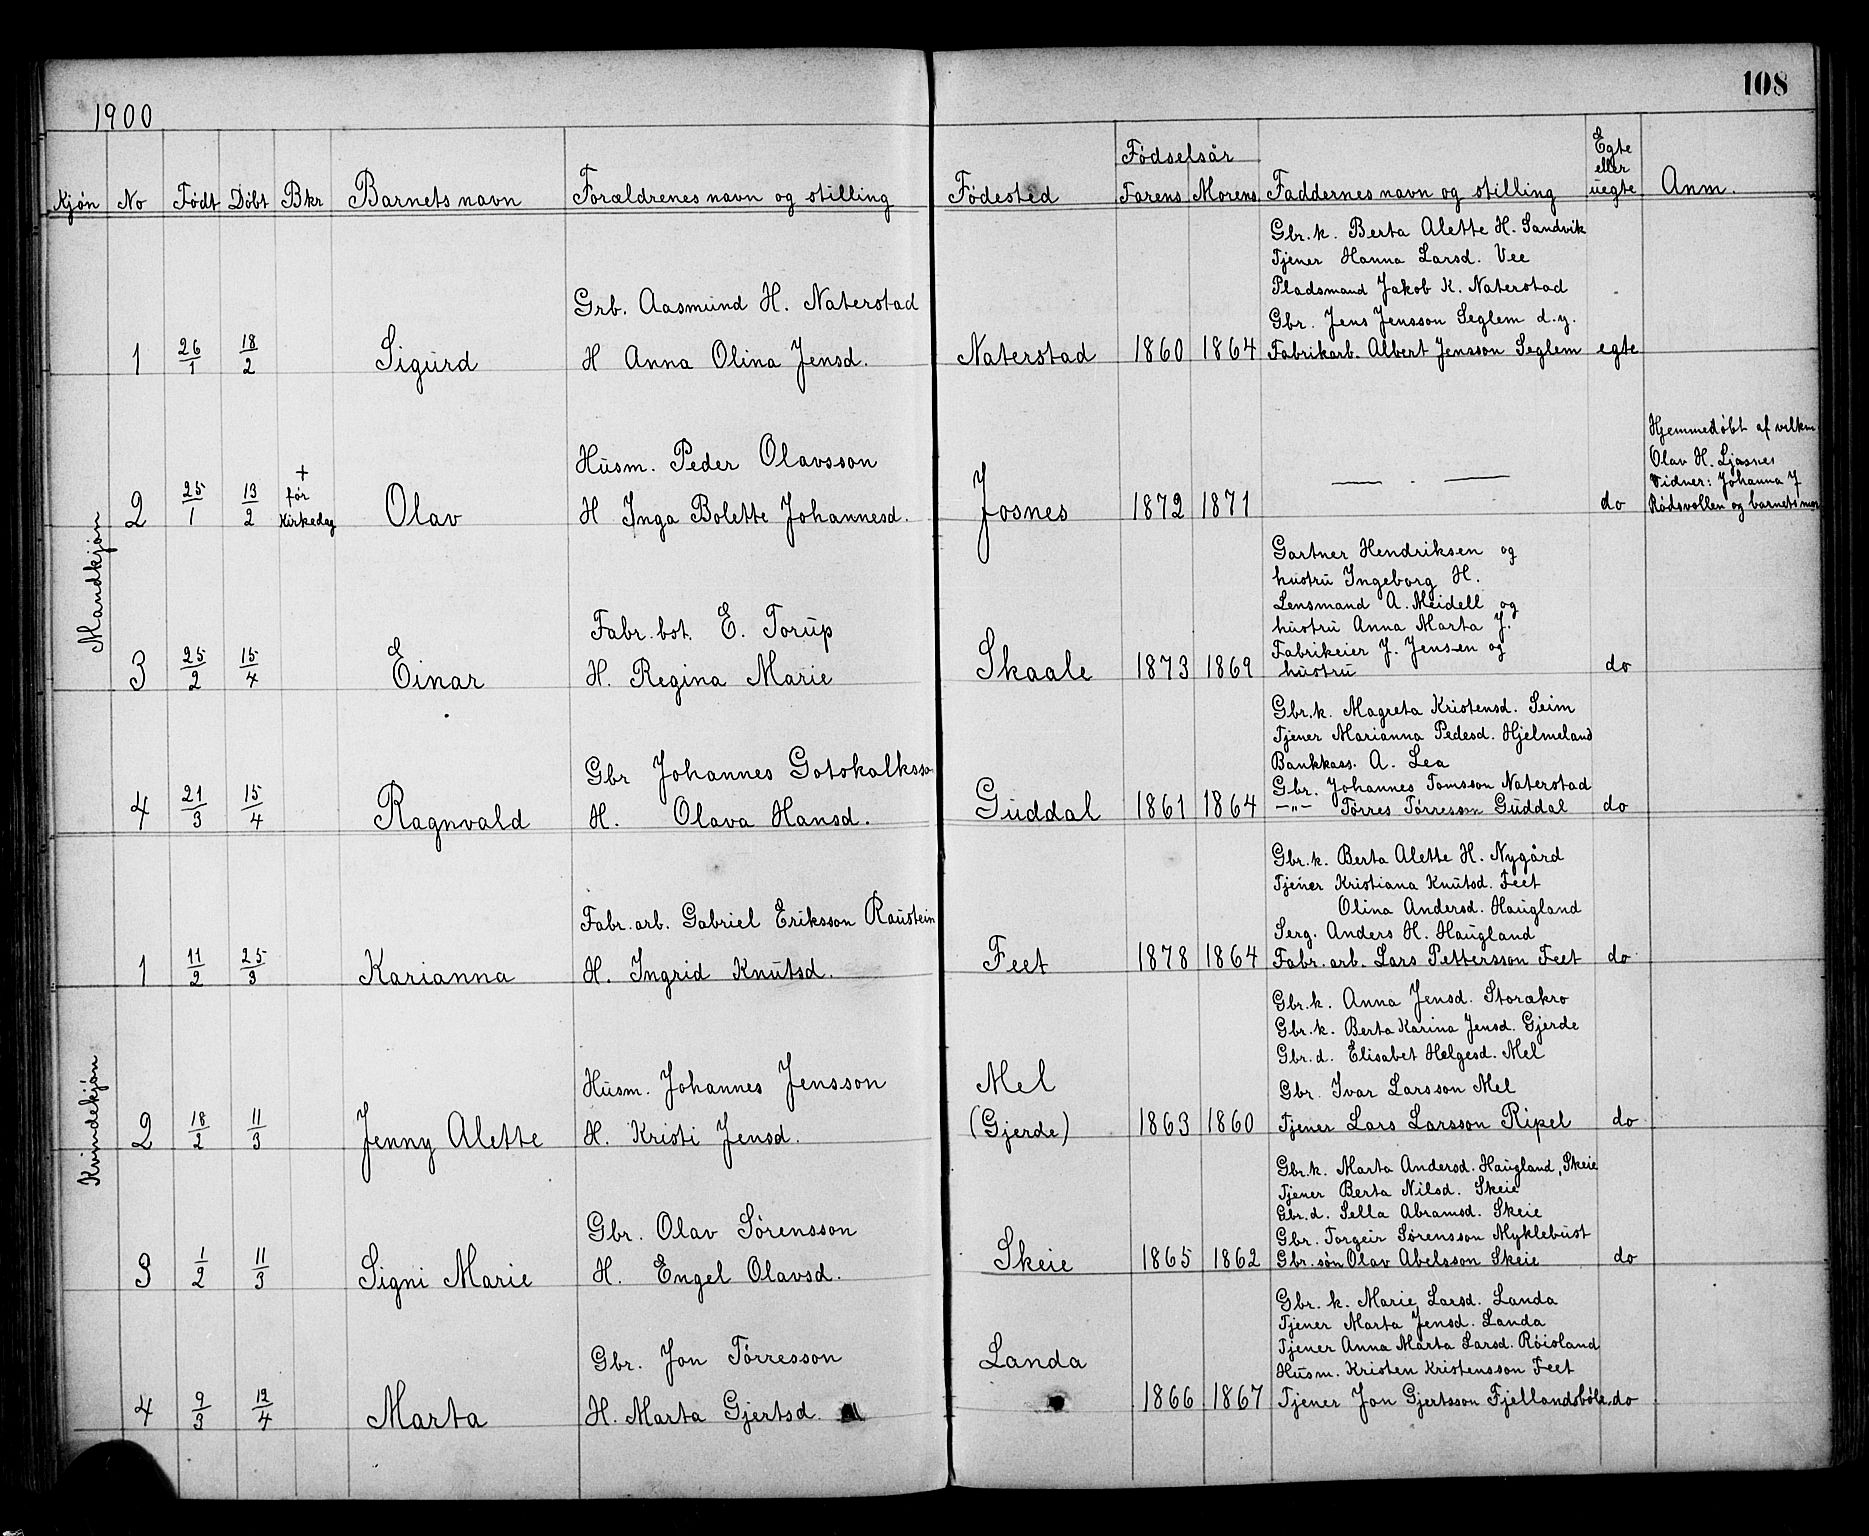 108
1900
Kjøn No Født Døbt Bkr Barnets navn Forældrenes navn og stilling Fødested Fødselsår Farens Morens Faddernes navn og stilling Egte eller uegte Anm.
Mandkjøn
1 26/1 18/2 Sigurd
Grb. Aasmund H. Naterstad
H Anna Olina Jensd.
Naterstad 1860 1864
Gbr. k. Berta Alette H. Sandvik
Tjener Hanna Larsd. Vee
Pladsmand Jakob K. Naterstad
Gbr. Jens Jensson Seglem d.y.
Fabrikarb. Albert Jensson Seglem
egte
2 25/1 13/2
+
før
Kirkedag
Olav
Husm. Peder Olavsson
H Inga Bolette Johannesd.
Josnes 1872 1871
— . —
do
Hjemmedøbt af vilkm
Olav H. Ljosnes
Vidner: Johanna J
Rødsvollen og barnets mor
3 25/2 15/4 Einar
Fabr. bot. E. Torup
H. Regina Marie
Skaale 1873 1869
Gartner Hendriksen og
hustru Ingeborg H.
Lensmand A. Meidell og
hustru Anna Marta J.
Fabrikeier J. Jensen og
hustru
do
4 21/3 15/4 Ragnvald
Gbr Johannes Gotskalksson
H. Olava Hansd.
Guddal 1861 1864
Gbr. k. Magreta Kristensd. Seim
Tjener Marianna Pedesd. Hjelmeland
Bankkass. A. Lea
Gbr. Johannes Tomsson Naterstad
—"— Tørres Tørresson Guddal
do
Kvindekjøn
1 11/2 25/3 Karianna
Fabr. arb. Gabriel Eriksson Raustein
H. Ingrid Knutsd.
Feet 1878 1864
Gbr. k. Berta Alette H. Nygård
Tjener Kristiana Knutsd. Feet
Olina Andersd. Haugland
Serg. Anders H. Haugland
Fabr. arb. Lars Pettersson Feet
do
2 18/2 11/3 Jenny Alette
Husm. Johannes Jensson
H. Kristi Jensd.
Mel
(Gjerde) 1863 1860
Gbr. k. Anna Jensd. Storækro
Gbr. k. Berta Karina Jensd. Gjerde
Gbr. d. Elisabet Helgesd. Mel
Gbr. Ivar Larsson Mel
Tjener Lars Larsson Ripel
do
3 1/2 11/3 Signi Marie
Gbr. Olav Sørensson
H. Engel Olavsd.
Skeie 1865 1862
Gbr. k. Marta Andersd. Haugland, Skeie
Tjener Berta Nilsd. Skeie
Gbr. d. Sella Abramsd. Skeie
Gbr. Torgeir Sørensson Myklebust
Gbr. søn Olav Abelsson Skeie
do
4 9/3 12/4 Marta
Gbr. Jon Tørresson
H. Marta Gjertsd.
Landa
1866 1867
Gbr. k. Marie Larsd. Landa
Tjener Marta Jensd. Landa
Tjener Anna Marta Larsd. Røisland
Husm. Kristen Kristensson Feet
Tjener Jon Gjertsson Fjellandsbøle
do